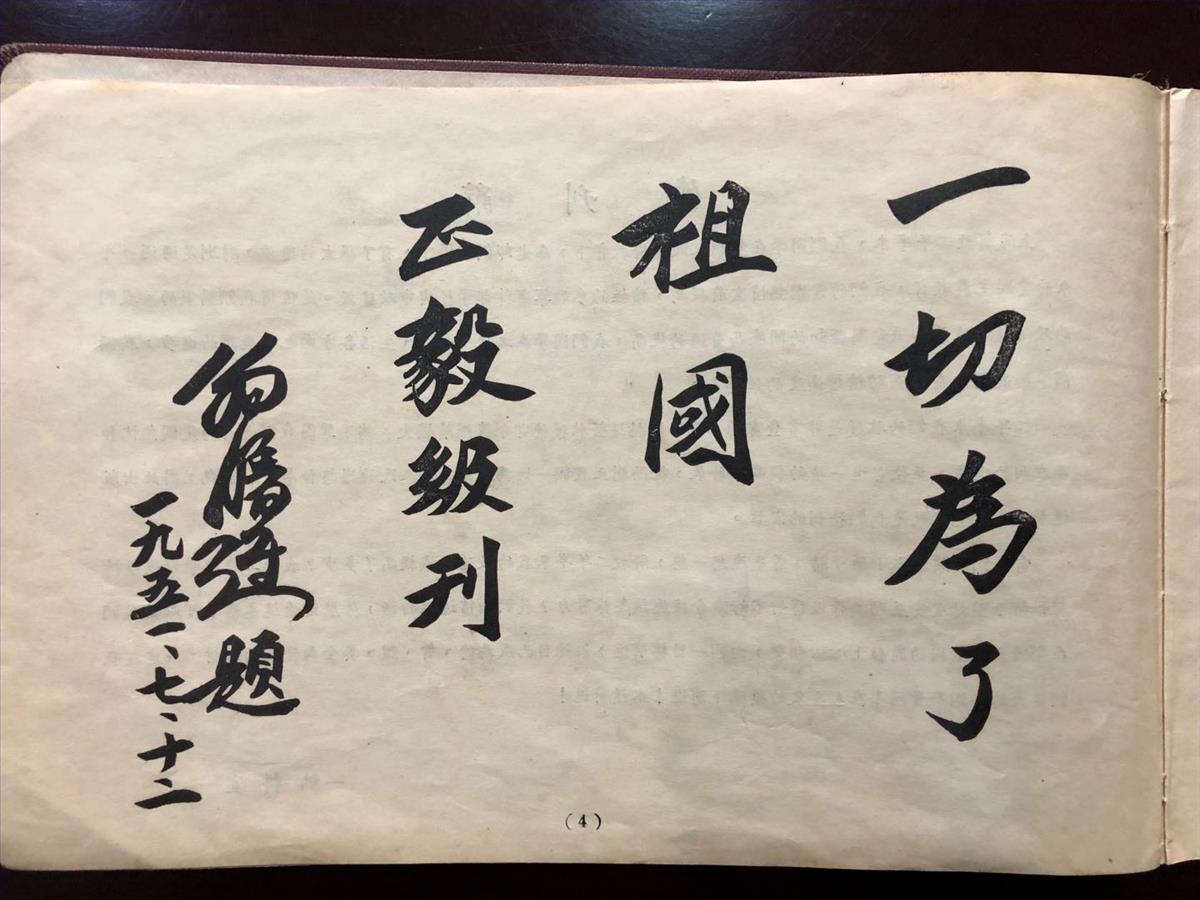 一切為了
祖國
正毅級刊
題
一九五一、七、十二
(4)